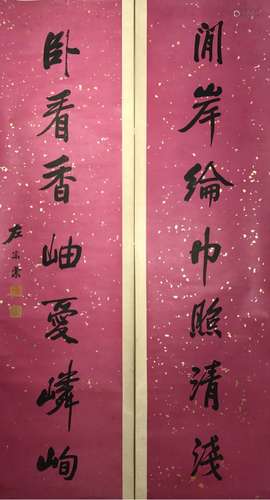 閒岸綸巾照清淺
卧看香岫憂嶙峋
左宗棠